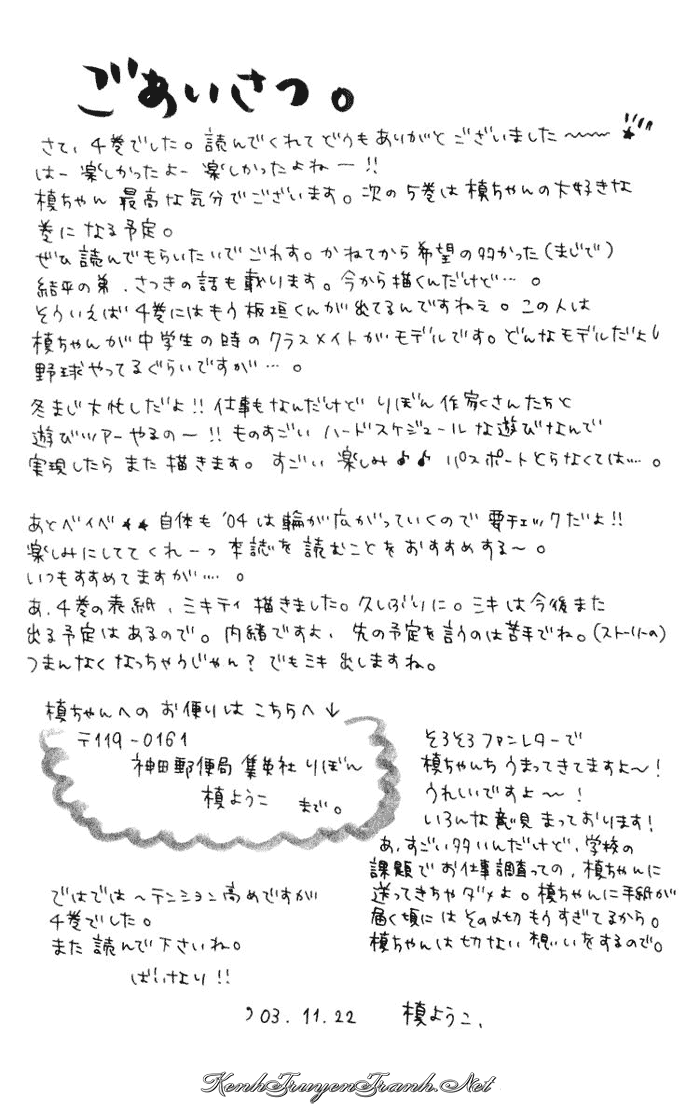 ごあいさつ。
さて、4巻でした。読んでくれてどうもありがとございました〜〜
はー楽しかったよー楽しかったよねー!!
槙ちゃん 最高な気分でございます。次の5巻は槙ちゃんの大好きな
巻になる予定。
ぜひ読んでもらいたいでごわす。かねてから希望の多かった(まじで)
結平の弟、さつきの話も載ります。今から描くんだけど…。
そういえば4巻にはもう板垣くんが出てるんですねぇ。この人は
槙ちゃんが中学生の時のクラスメイトがモデルです。どんなモデルだよ!
野球やってるぐらいですが…。
冬まじ大忙しだよ!!仕事もなんだけど りぼん作家さんたちと
遊びツアーやるの〜!!ものすごい ハードスケジュールな遊びなんで
実現したら また描きます。すごい楽しみ♪♪ パスポートとらなくては…。
あとベイベ★★自体も'04は輪が広がっていくので要チェックだよ!!
楽しみにしててくれーっ 本誌を読むことをおすすめする〜。
いつもすすめてますが…。
あ、4巻の表紙、ミキティ描きました。久しぶりに。ミキは今後また
出る予定はあるので。内緒ですよ、先の予定を言うのは苦手でね。(ストーリーの)
つまんなくなっちゃうじゃん?でもミキ出しますね。
槙ちゃんへのお便りはこちらへ↓
〒119-0161
神田郵便局 集英社 りぼん
槙ようこ まで。
そろそろファンレターで
槙ちゃんち うまってきてますよ〜!
うれしいですよ〜!
いろんな意見まっております!
あ、すごい多いんだけど、学校の
課題でお仕事調査っての、槙ちゃんに
送ってきちゃダメよ。槙ちゃんに手紙が
届く頃にはその〆切もうすぎてるから。
槙ちゃんは切ない想いをするので。
ではでは〜テンション高めですが
4巻でした。
また読んで下さいね。
ばいなり!!
'03.11.22 槙ようこ、
KenhTruyenTranh.Net